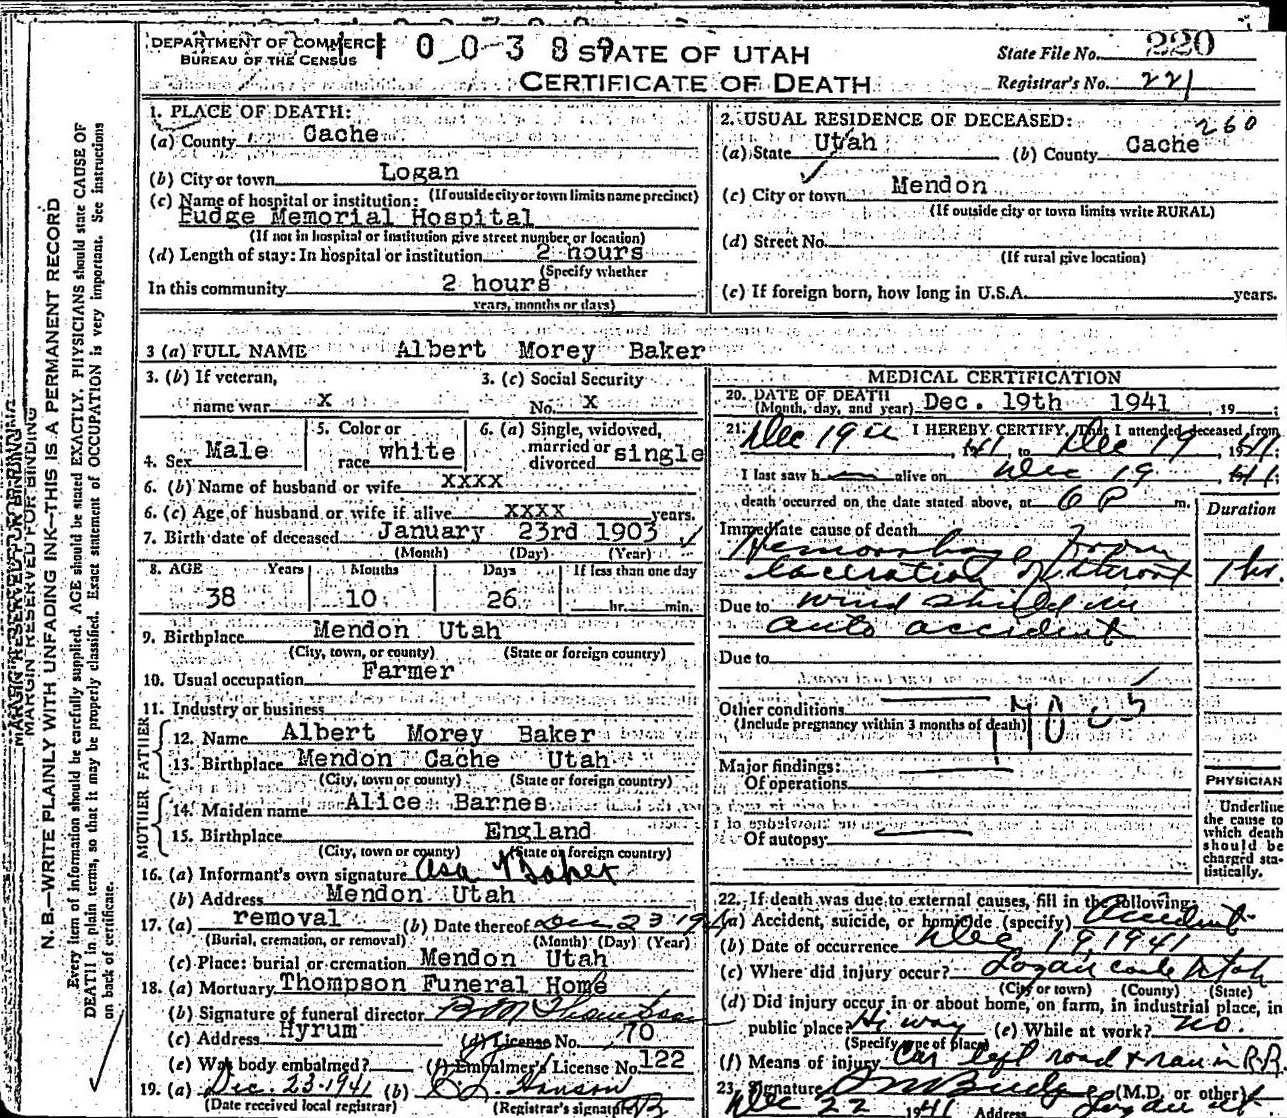 DEPARTMENT OF COMMERCE
BUREAU OF THE CENSUS
1 0 0 3 8 9
STATE OF UTAH
CERTIFICATE OF DEATH
State File No. 220
Registrar's No. 221
MARGIN RESERVED FOR BINDING
N. B.—WRITE PLAINLY WITH UNFADING INK—THIS IS A PERMANENT RECORD
Every item of information should be carefully supplied. AGE should be stated EXACTLY. PHYSICIANS should state CAUSE OF
DEATH in plain terms, so that it may be properly classified. Exact statement of OCCUPATION is very important. See instructions
on back of certificate.
1. PLACE OF DEATH:
(a) County Cache
(b) City or town Logan
(If outside city or town limits name precinct)
(c) Name of hospital or institution:
Budge Memorial Hospital
(If not in hospital or institution give street number or location)
(d) Length of stay: In hospital or institution 2 hours
(Specify whether
In this community 2 hours
years, months or days)
2. USUAL RESIDENCE OF DECEASED:
260
(a) State Utah (b) County Cache
(c) City or town Mendon
(If outside city or town limits write RURAL)
(d) Street No.
(If rural give location)
(e) If foreign born, how long in U.S.A. years.
3 (a) FULL NAME Albert Morey Baker
3. (b) If veteran,
name war X
3. (c) Social Security
No. X
4. Sex Male
5. Color or
race white
6. (a) Single, widowed,
married or
divorced single
6. (b) Name of husband or wife XXXX
6. (c) Age of husband or wife if alive XXXX years.
7. Birth date of deceased January 23rd 1903
(Month) (Day) (Year)
8. AGE Years Months Days If less than one day
38 10 26 hr. min.
9. Birthplace Mendon Utah
(City, town, or county) (State or foreign country)
10. Usual occupation Farmer
11. Industry or business
FATHER
12. Name Albert Morey Baker
13. Birthplace Mendon Cache Utah
(City, town or county) (State or foreign country)
MOTHER
14. Maiden name Alice Barnes
15. Birthplace England
(City, town or county) (State or foreign country)
16. (a) Informant's own signature Asa Baker
(b) Address Mendon Utah
17. (a) removal (b) Date thereof Dec 23 1941
(Burial, cremation, or removal) (Month) (Day) (Year)
(c) Place: burial or cremation Mendon Utah
18. (a) Mortuary Thompson Funeral Home
(b) Signature of funeral director B M Thompson
(c) Address Hyrum (d) License No. 70
(e) Was body embalmed? (f) Embalmer's License No. 122
19. (a) Dec. 23 1941 (b) Hanson
(Date received local registrar) (Registrar's signature)
MEDICAL CERTIFICATION
20. DATE OF DEATH
(Month, day, and year) Dec. 19th 1941, 19
21. I HEREBY CERTIFY, That I attended deceased from
Dec 19, 1941, to Dec 19, 1941;
I last saw h alive on Dec 19, 1941;
death occurred on the date stated above, at 6 P m.
Duration
Immediate cause of death
Hemorrhage from
laceration of throat 1 hr.
Due to wind shield in
auto accident
Due to
Other conditions
(Include pregnancy within 3 months of death)
Major findings:
Of operations
Of autopsy
PHYSICIAN
Underline
the cause to
which death
should be
charged sta-
tistically.
22. If death was due to external causes, fill in the following:
(a) Accident, suicide, or homicide (specify) Accident
(b) Date of occurrence Dec 19, 1941
(c) Where did injury occur? Logan Cache Utah
(City or town) (County) (State)
(d) Did injury occur in or about home, on farm, in industrial place, in
public place? Hi way (e) While at work? no.
(Specify type of place)
(f) Means of injury Car left road & ran in R.R.
23. Signature Budge (M.D. or other)
Dec 22 1941 Address Logan Ut